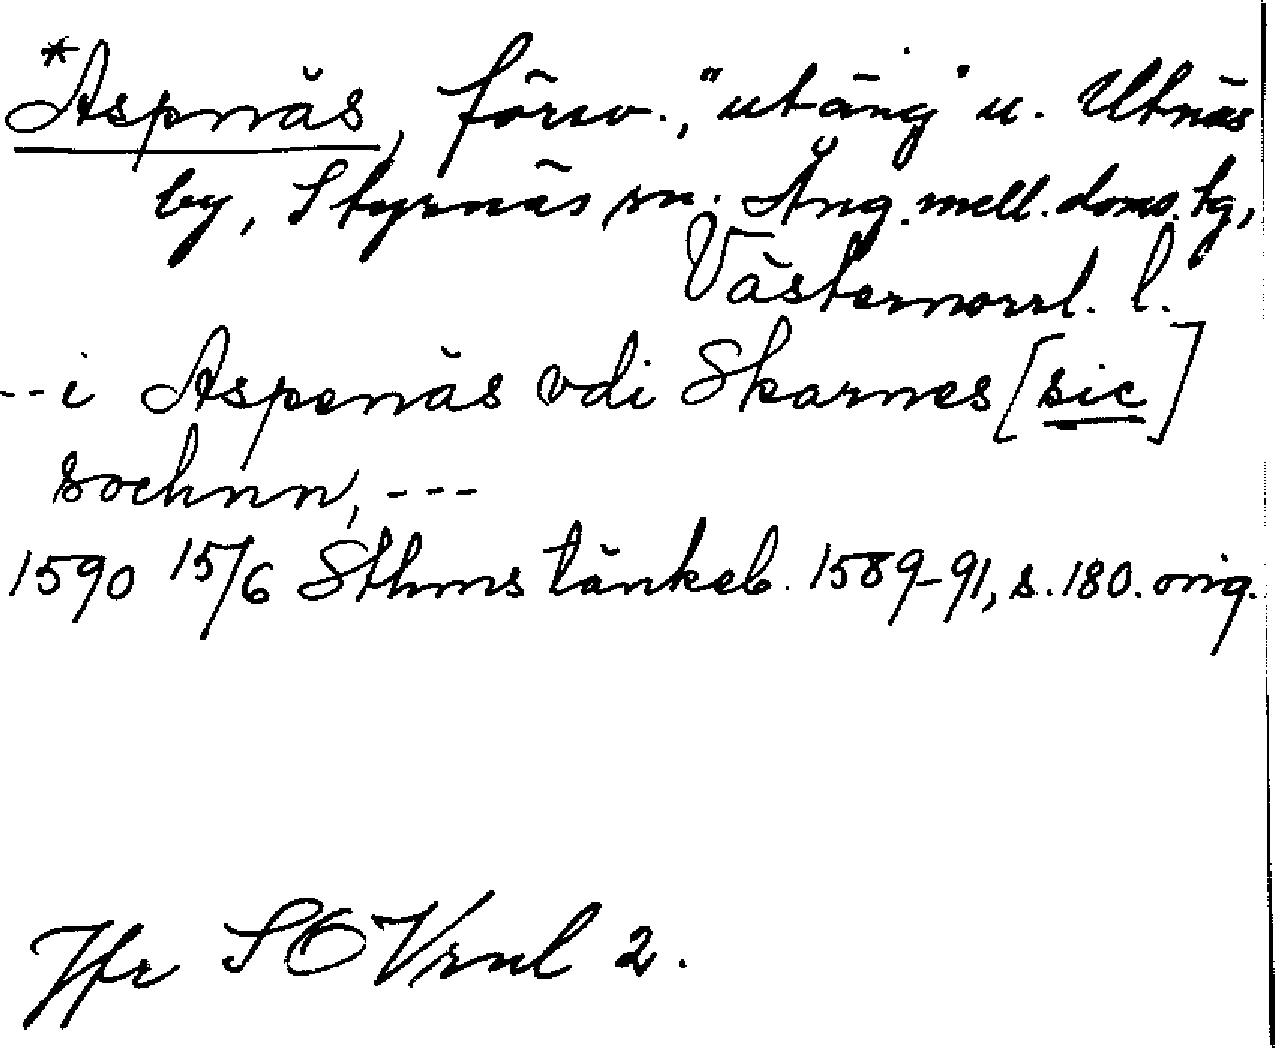 *Aspnäs, försv., "utäng" u. Utnäs
by, Styrnäs sn. Ång. mell. doms. tg,
Västernorrl. l.
--i Aspenäs vdi Skarnes [sic]
sochnn, ---
1590 15/6 Sthms tänkeb. 1589-91, s. 180. orig.
Jfr SOVrnl 2.